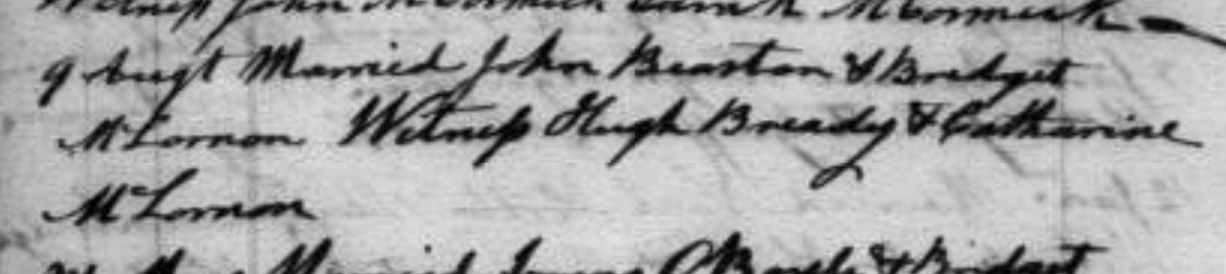 Witness John McCormick Sarah McCormick
9 Augt Married John Beaston & Bridget
McLornon Witness Hugh Bready & Catharine
McLornon
Married James O Boyle & Bridget